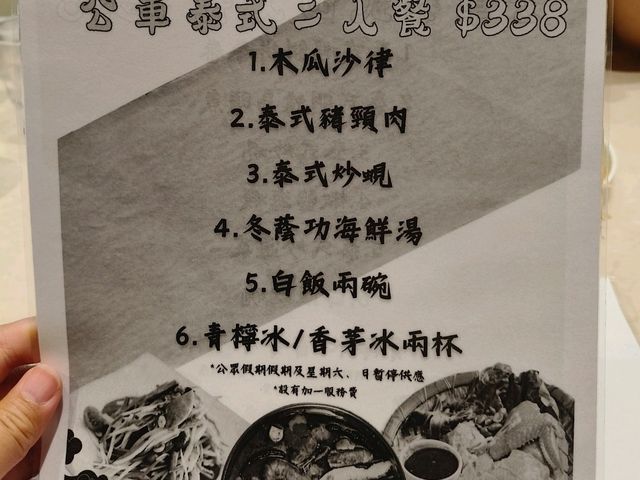 公軍泰式二人餐 $338
1.木瓜沙律
2.泰式豬頸肉
3.泰式炒蜆
4.冬蔭功海鮮湯
5.白飯兩碗
6.青檸冰/香茅冰兩杯
*公眾假期假期及星期六、日暫停供應
*設有加一服務費